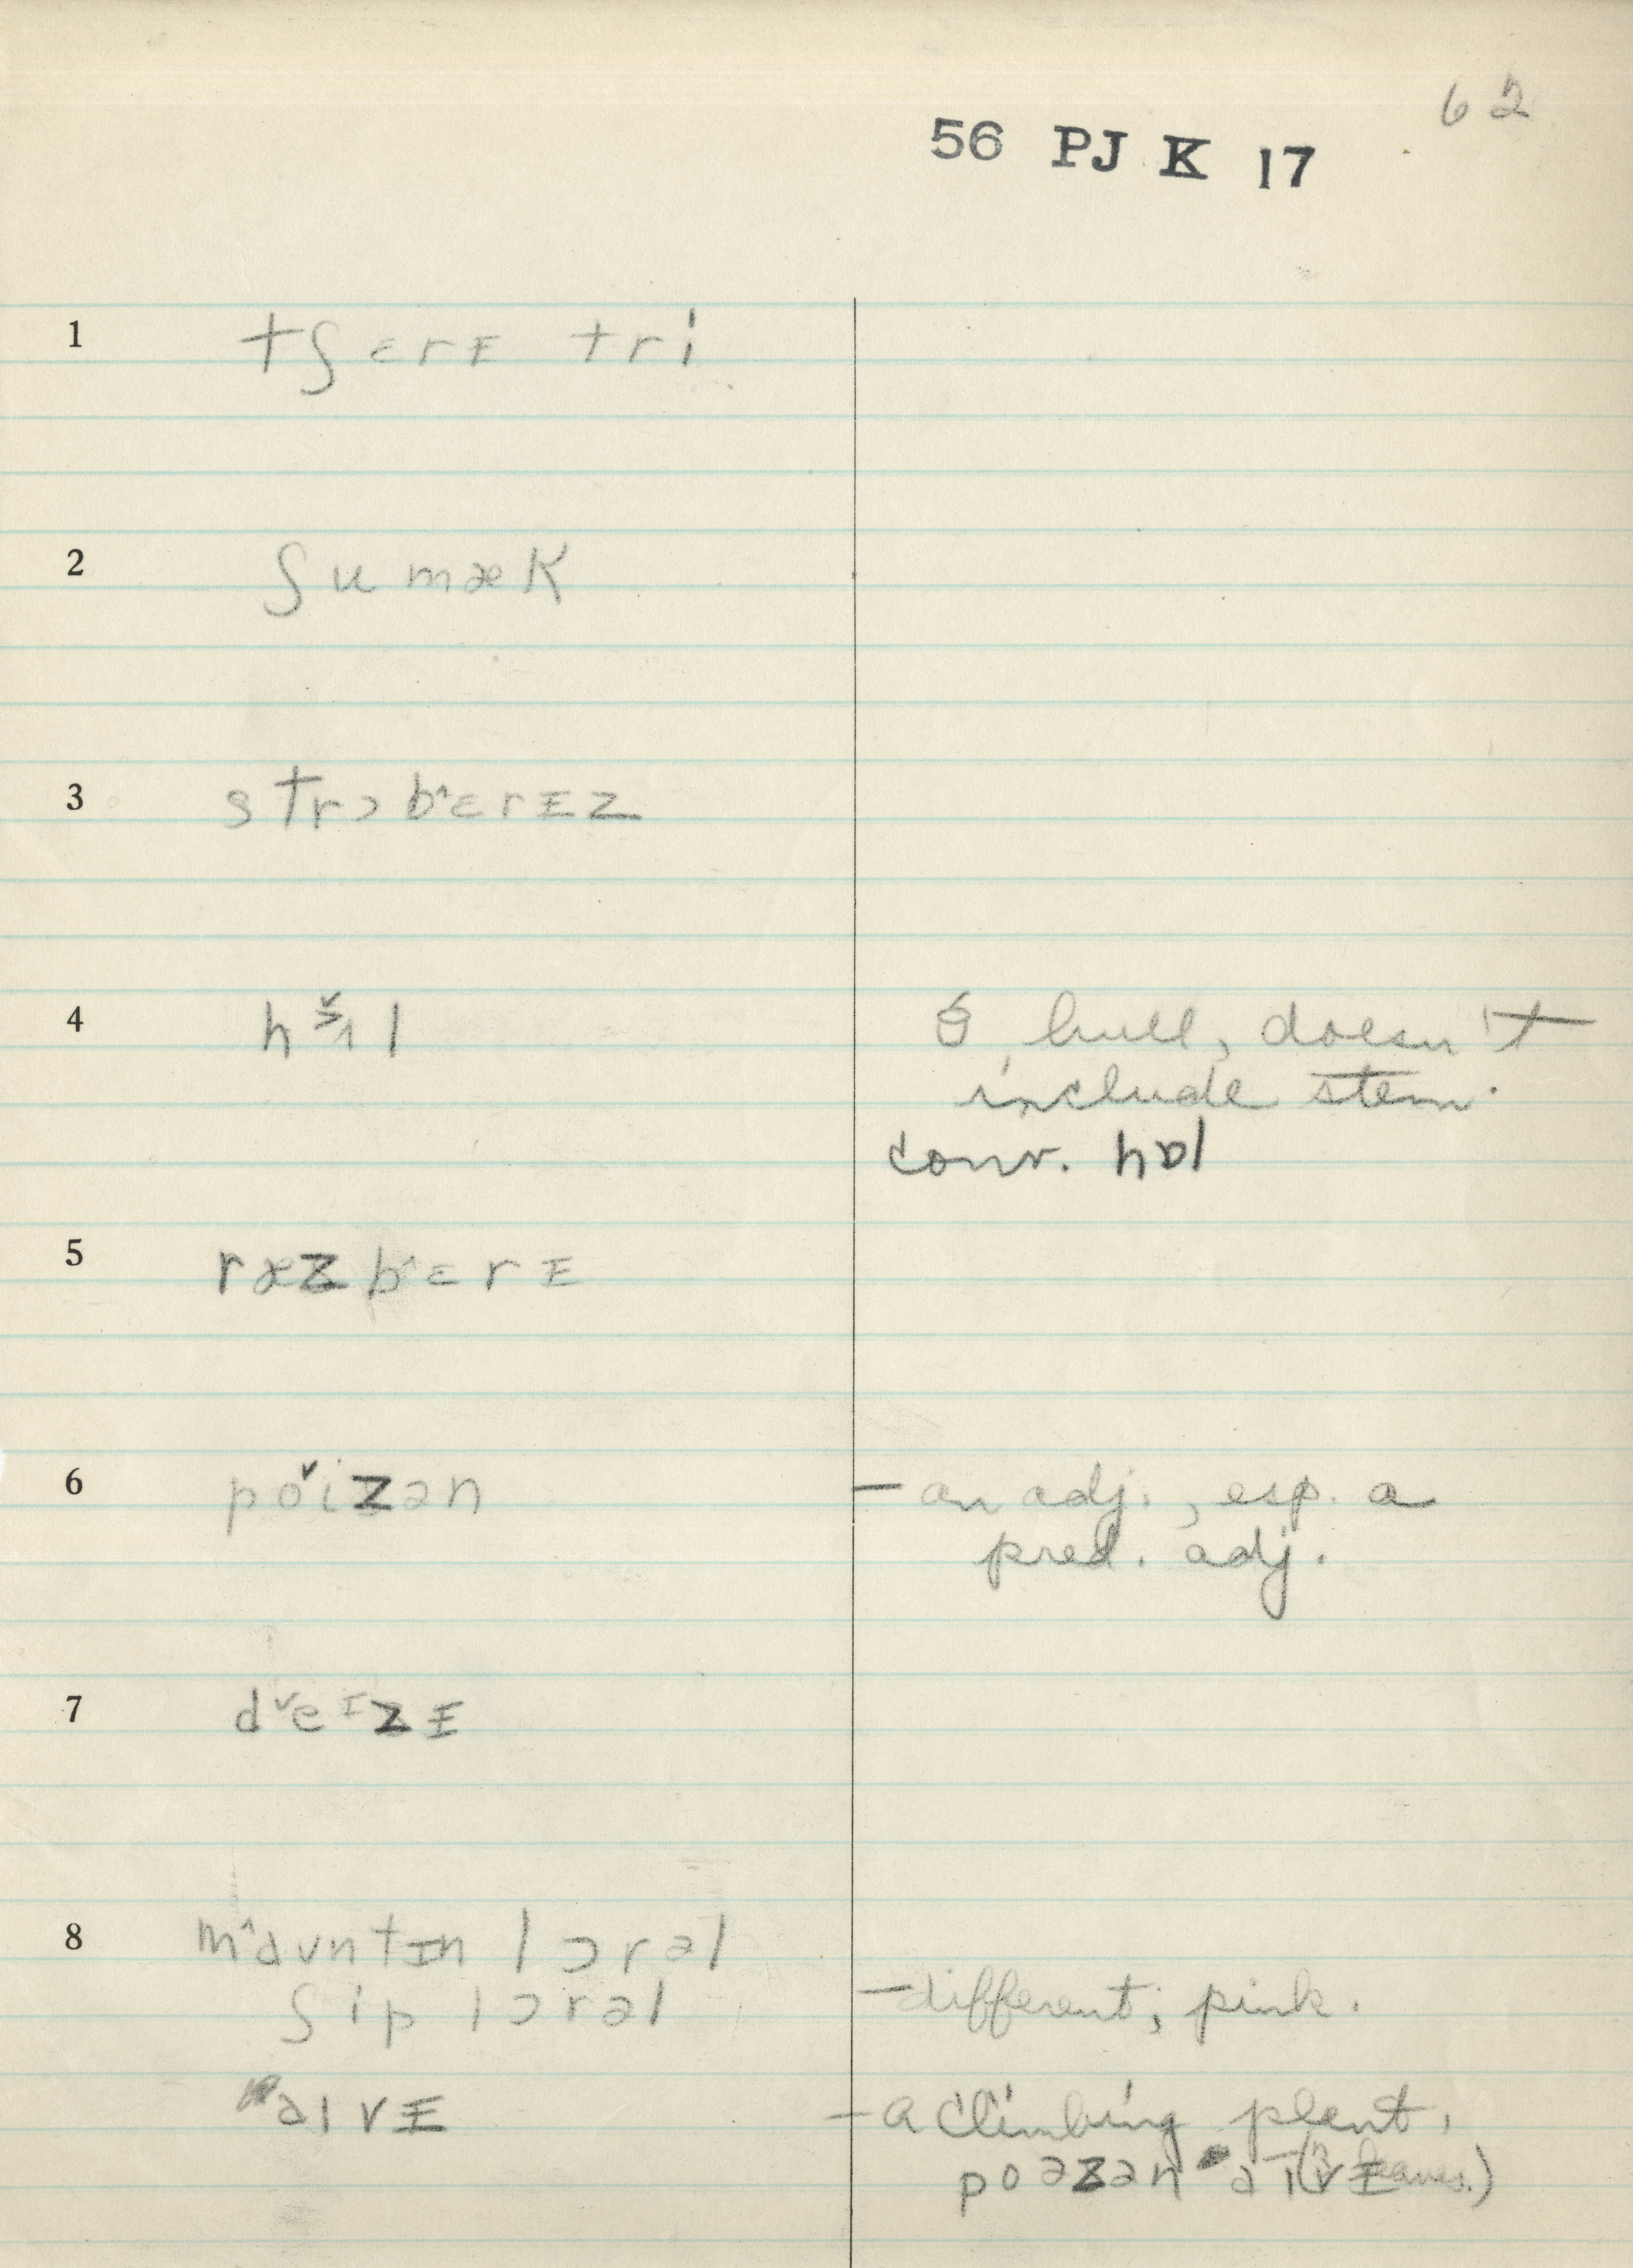 62
56 PJ K 17
1 tʃɛrɪ tri
2 ʃumæk
3 strɔb^ɛrɪz
4 h l
hull, doesn't
include stem.
conv. hɒl
5 ræzb^ɛrɪ
6 pǒizən
— an adj., esp. a
pred. adj.
7 dˇeɪzɪ
8 m^aʊntɪn lɔrəl
ʃip lɔrəl
— different; pink.
aɪvɪ
— a climbing plant,
poəzən aɪvɪ
(3 leaves.)